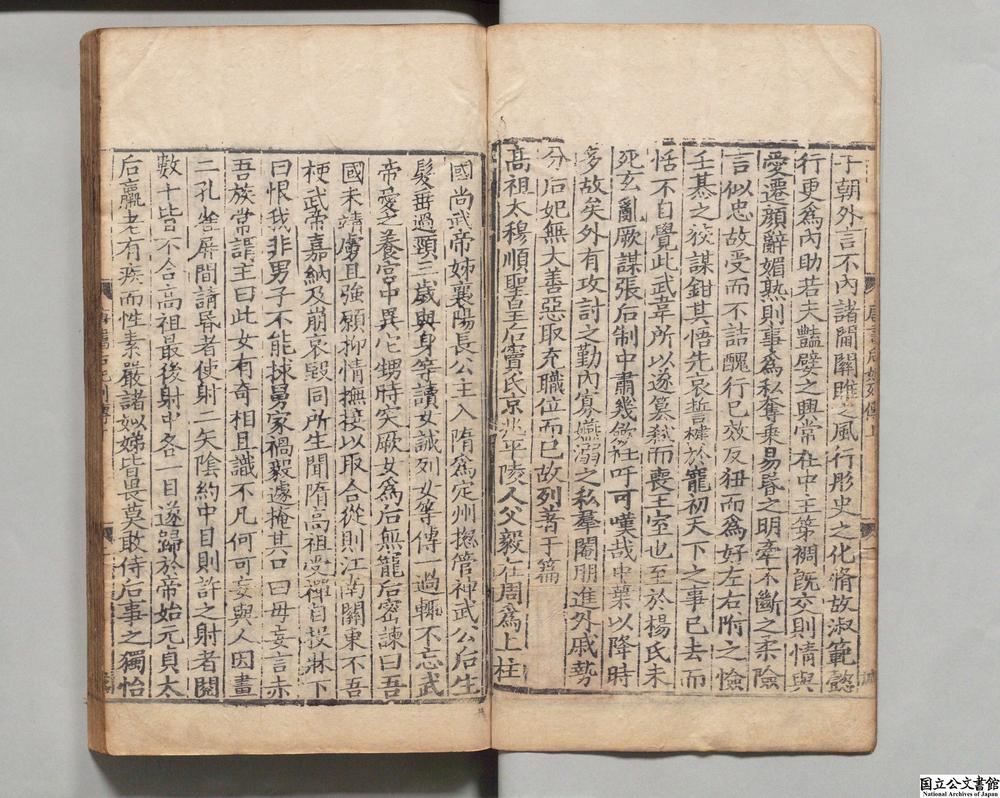 于朝外言不內諸閫關雎之風行彤史之化脩故淑範懿
行更爲內助若夫豔嬖之興常在中主第禂旣交則情與
愛遷顔辭媚熟則事爲私奪乘易昬之明牽不斷之柔險
言似忠故受而不詰醜行已效反狃而爲好左右附之憸
壬惎之狡謀鉗其悟先哀誓楗於寵初天下之事已去而
恬不自覺此武韋所以遂簒弒而喪王室也至於楊氏未
死玄亂厥謀張后制中肅幾斂衽吁可嘆哉中葉以降時
多故矣外有攻討之勤內寡嬿溺之私羣閹朋進外戚勢
分后妃無大善惡取充職位而已故列著于篇
高祖太穆順聖皇后竇氏京兆平陵人父毅在周爲上柱
國尚武帝姊襄陽長公主入隋爲定州揔管神武公后生
髮垂過頸三歲與身等讀女誡列女等傳一過輒不忘武
帝愛之養宮中異它甥時突厥女爲后無寵后密諫曰吾
國未靖虜且強願抑情撫接以取合從則江南關東不吾
梗武帝嘉納及崩哀毀同所生聞隋高祖受禪自投牀下
曰恨我非男子不能捄舅家禍毅遽掩其口曰毋妄言赤
吾族常謂主曰此女有奇相且識不凡何可妄與人因畫
二孔雀屏間請昏者使射二矢陰約中目則許之射者閱
數十皆不合高祖最後射中各一目遂歸於帝始元貞太
后羸老有疾而性素嚴諸姒娣皆畏莫敢侍后事之獨怡
国立公文書館
National Archives of Japan